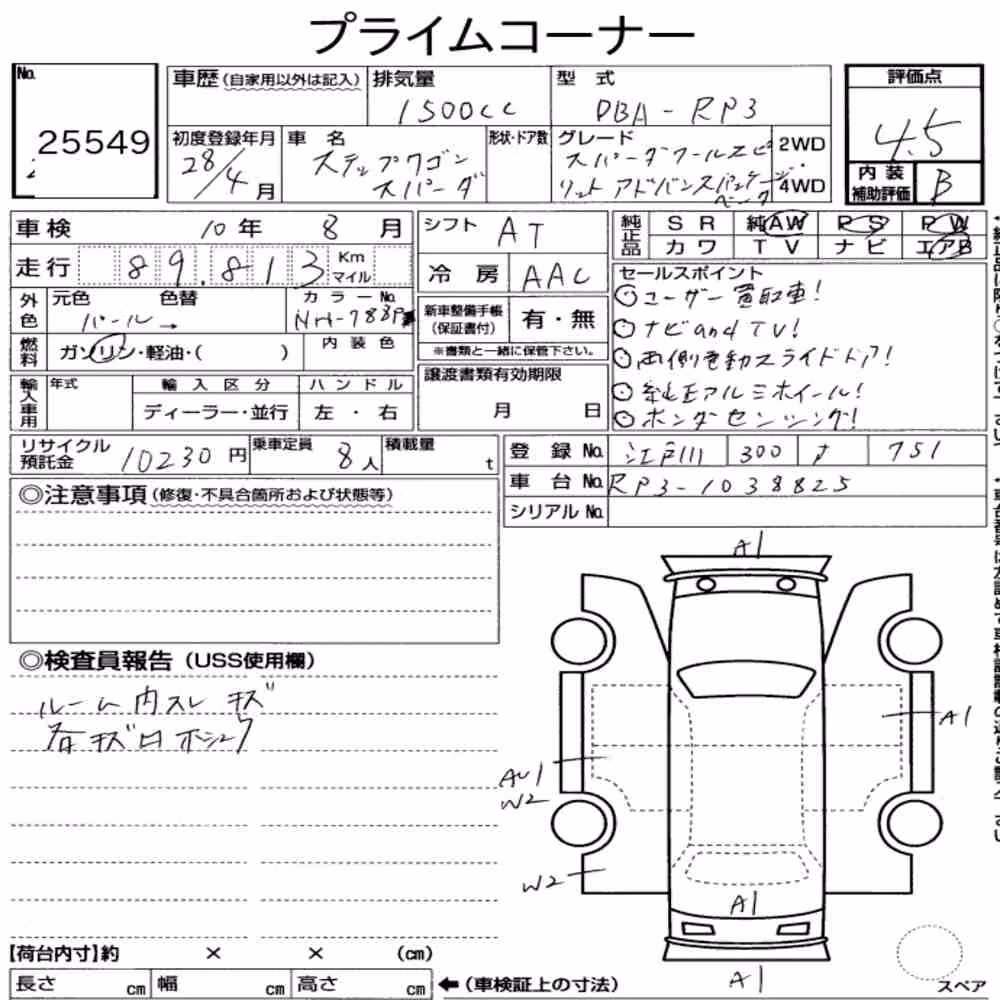 プライムコーナー
No.
25549
車歴 (自家用以外は記入)
排気量
1500cc
型 式
DBA-RP3
評価点
4.5
内装補助評価
B
初度登録年月
28/4月
車 名
ステップワゴン
スパーダ
形状・ドア数
グレード
スパーダクールスピ
リット アドバンスパッケージ
ベータ
2WD
・
4WD
車検
10年 8月
シフト
AT
純正品
SR 純AW PS PW
カワ TV ナビ エアB
走行
89.813
Km
マイル
冷房
AAC
セールスポイント
○ユーザー買取車!
○ナビandTV!
○両側電動スライドドア!
○純正アルミホイール!
○ホンダセンシング!
外色
元色
色替
パール→
カラーNo.
NH-788P
新車整備手帳
(保証書付)
有・無
※書類と一緒に保管下さい。
燃料
ガソリン・軽油・( )
内装色
輸入車用
年式
輸入区分
ハンドル
ディーラー・並行
左・右
譲渡書類有効期限
月 日
リサイクル
預託金
10230円
乗車定員
8人
積載量
t
登録No.
江戸川 300 751
車台No.
RP3-1038825
シリアルNo.
◎注意事項(修復・不具合箇所および状態等)
◎検査員報告(USS使用欄)
ルーム内スレ キズ
各キズ凹 ホシュウ
A1
A1
AU1
W2
W2
A1
A1
スペア
【荷台内寸】約 × × (cm)
長さ cm 幅 cm 高さ cm
←(車検証上の寸法)